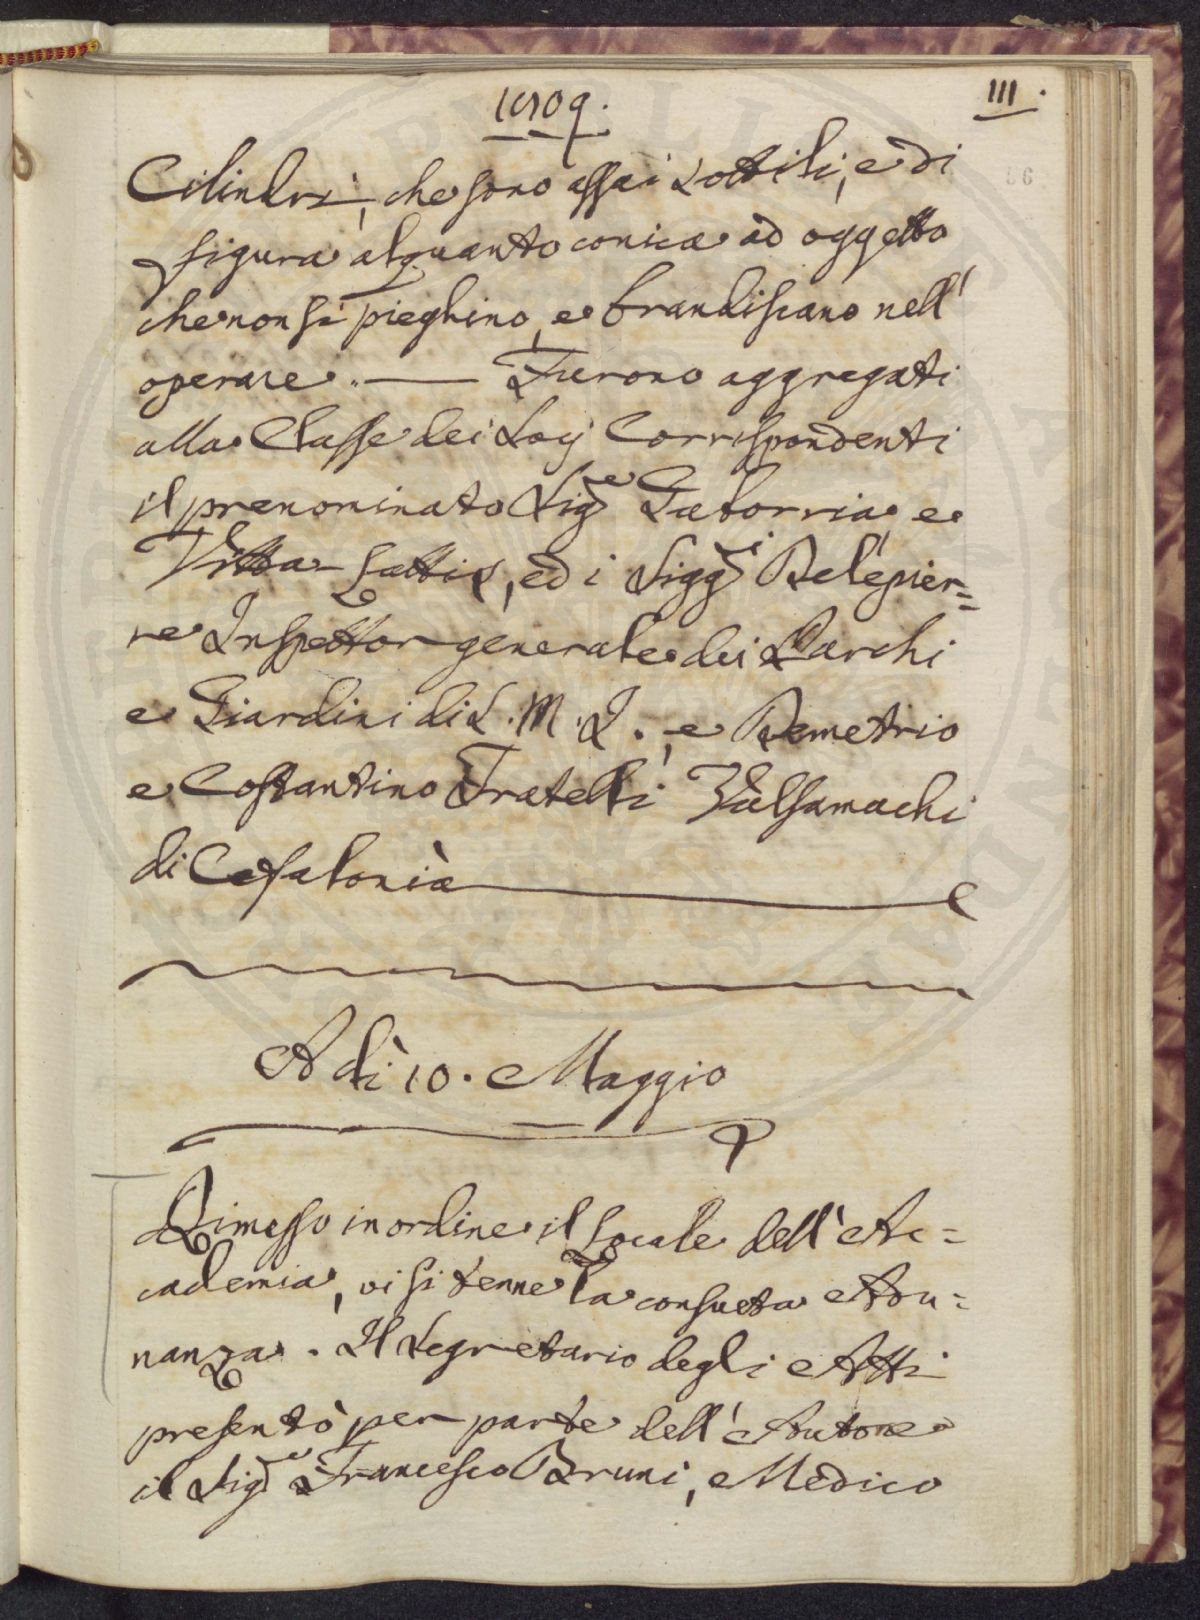 1809.
111.
Cilindri, che sono assai sottili, e di
figura alquanto conica ad oggetto
che non si pieghino, e brandiscano nell'
operare. — Furono aggregati
alla Classe dei Socj Corrispondenti
il prenominato Sig.e e
ed i Sigg.i Belépier=
re Inspettor generale dei Parchi
e Giardini di S. M. I., e Demetrio
e Costantino Fratelli Valsamachi
di Cefalonia
A dì 10. Maggio
Rimesso in ordine il Locale dell'Ac=
cademia, vi si tenne la consueta Adu=
nanza. Il Segretario degli Atti
presentò per parte dell'Autore
il Sig.e Francesco Bruni, Medico